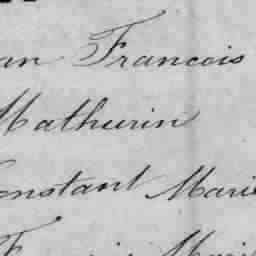 an Francois
Mathurin
Constant Marie